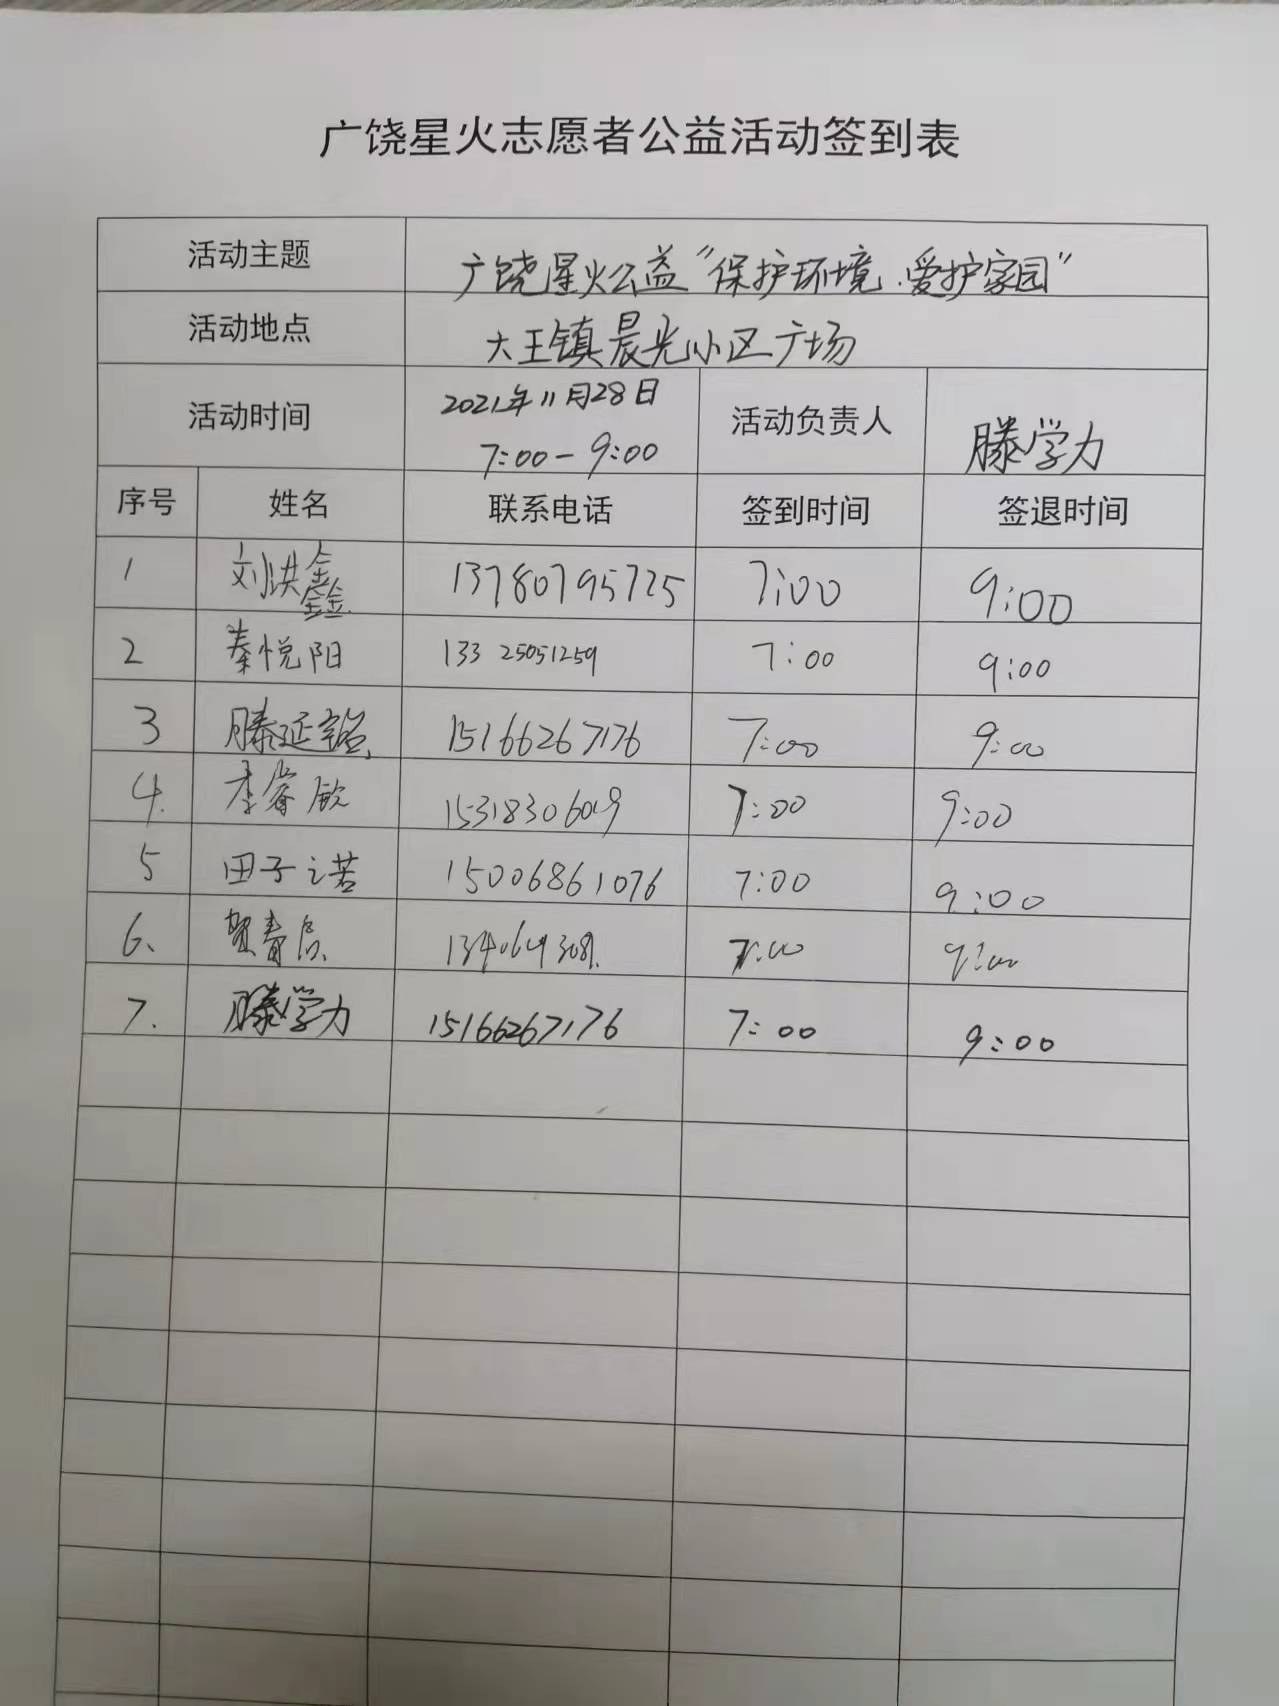 广饶星火志愿者公益活动签到表
活动主题 广饶星火公益“保护环境.爱护家园”
活动地点 大王镇晨光小区广场
活动时间 2021年11月28日 7:00-9:00 活动负责人 滕学力
序号 姓名 联系电话 签到时间 签退时间
1 刘洪鑫 13780795725 7:00 9:00
2 秦悦阳 133 25051259 7:00 9:00
3 滕延 15166267176 7:00 9:00
4. 李睿欣 7:00 9:00
5 田子诺 15006861076 7:00 9:00
6、 贺 7:00 9:00
7. 滕学力 15166267176 7:00 9:00